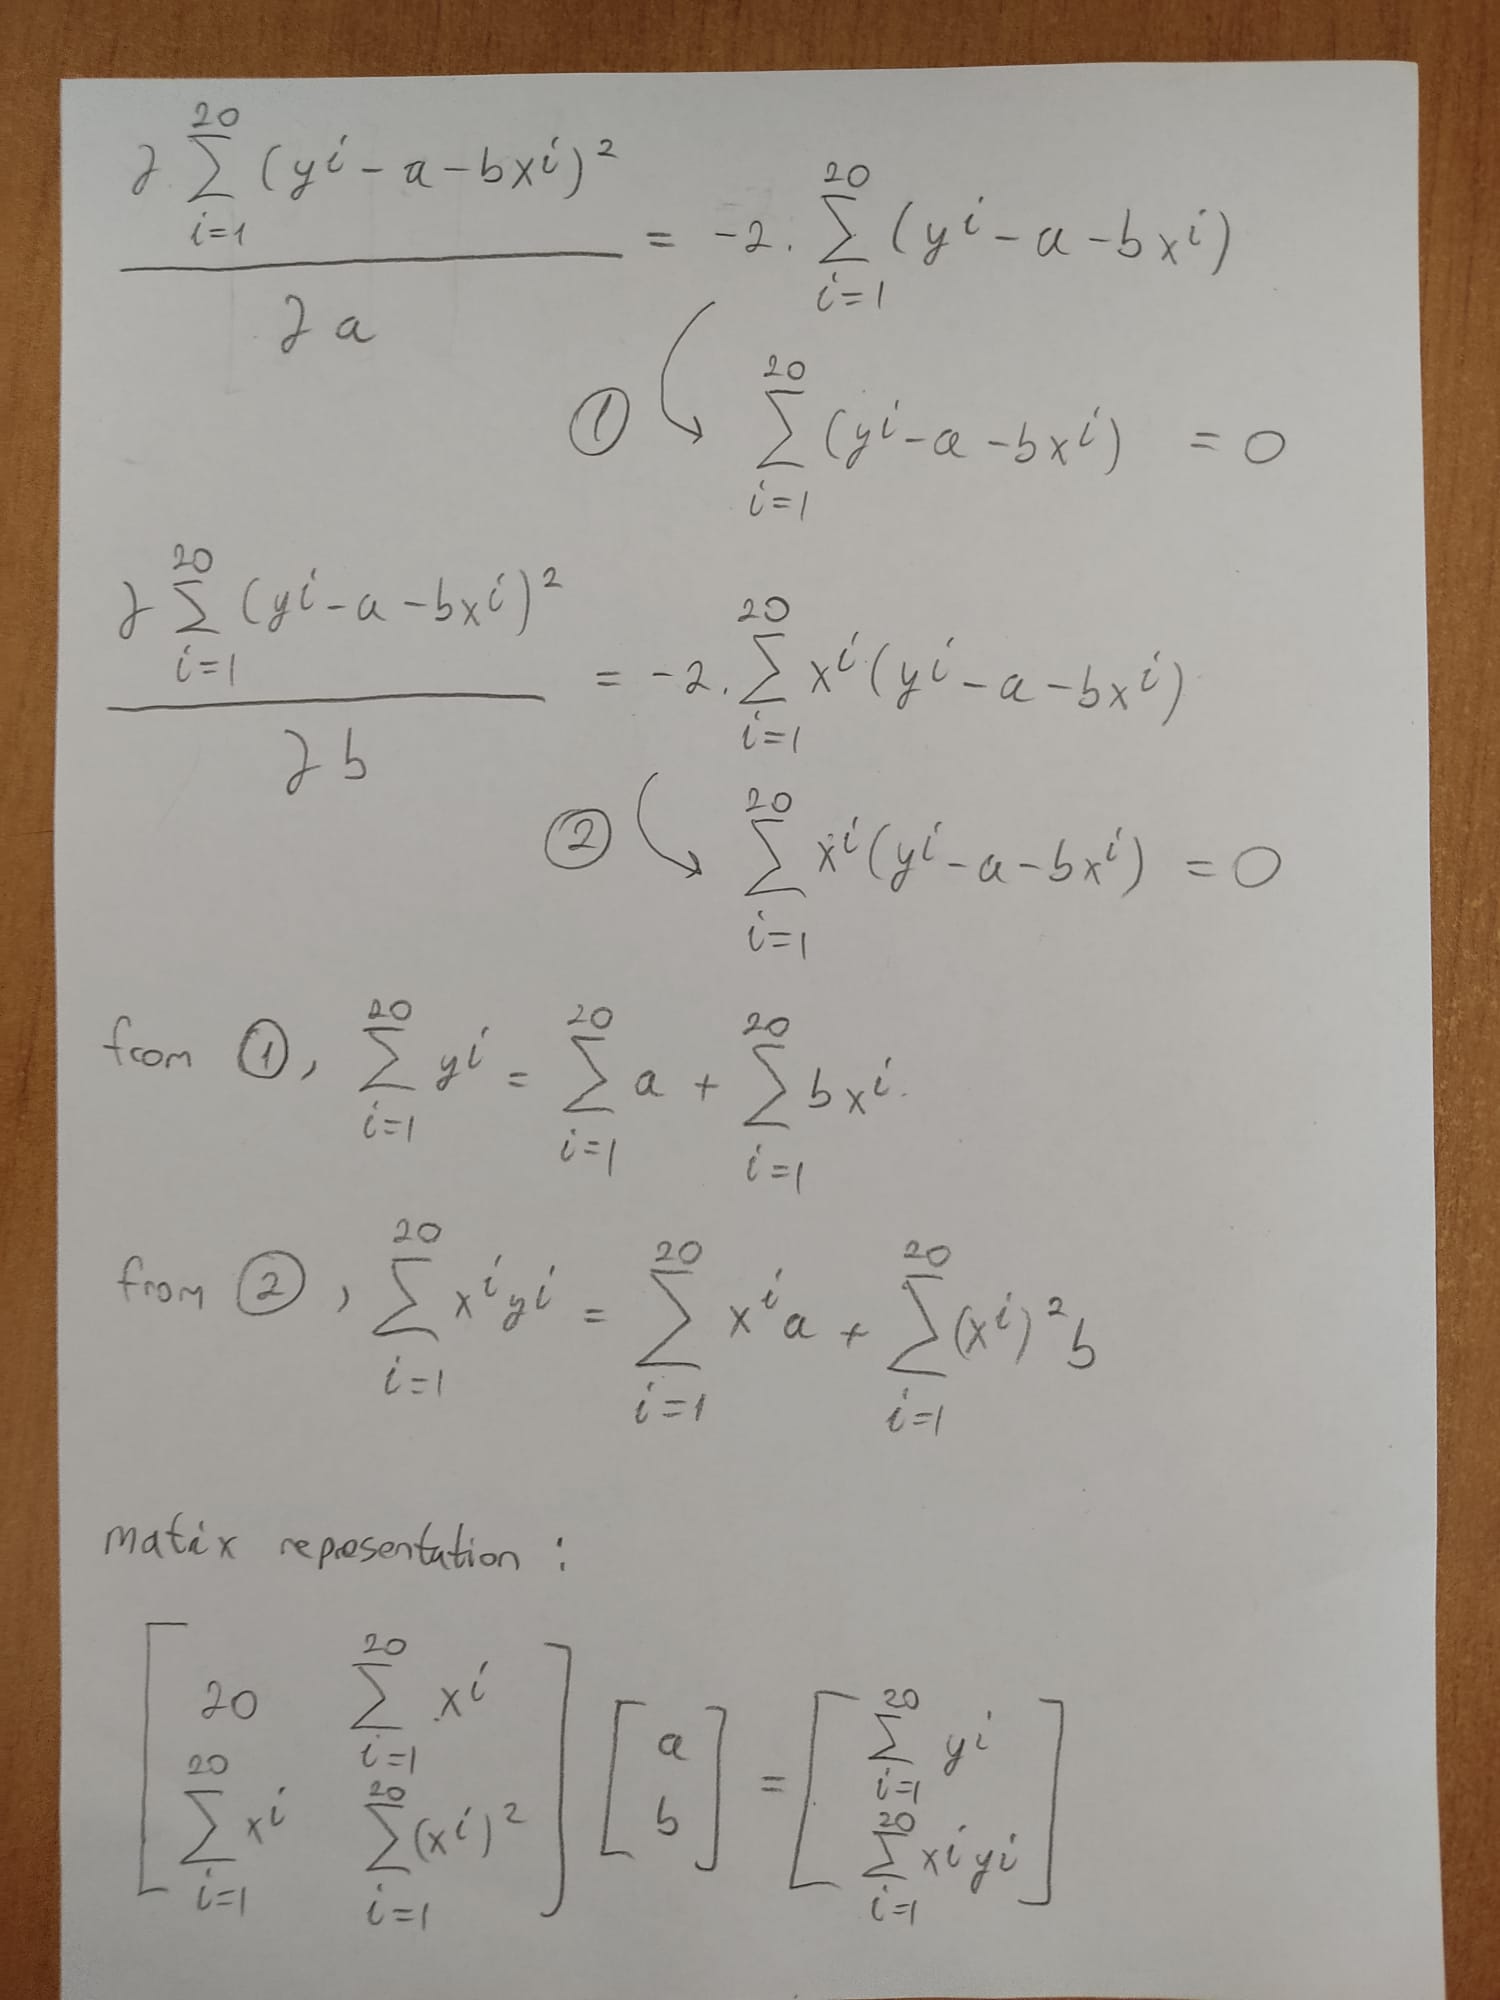 ∂ Σ_{i=1}^{20} (y^i - a - bx^i)^2 / ∂a = -2 . Σ_{i=1}^{20} (y^i - a - bx^i)
① Σ_{i=1}^{20} (y^i - a - bx^i) = 0
∂ Σ_{i=1}^{20} (y^i - a - bx^i)^2 / ∂b = -2 . Σ_{i=1}^{20} x^i (y^i - a - bx^i)
② Σ_{i=1}^{20} x^i (y^i - a - bx^i) = 0
from ①, Σ_{i=1}^{20} y^i = Σ_{i=1}^{20} a + Σ_{i=1}^{20} bx^i.
from ②, Σ_{i=1}^{20} x^i y^i = Σ_{i=1}^{20} x^i a + Σ_{i=1}^{20} (x^i)^2 b
matrix representation :
[ 20 Σ_{i=1}^{20} x^i ; Σ_{i=1}^{20} x^i Σ_{i=1}^{20} (x^i)^2 ] [ a ; b ] = [ Σ_{i=1}^{20} y^i ; Σ_{i=1}^{20} x^i y^i ]